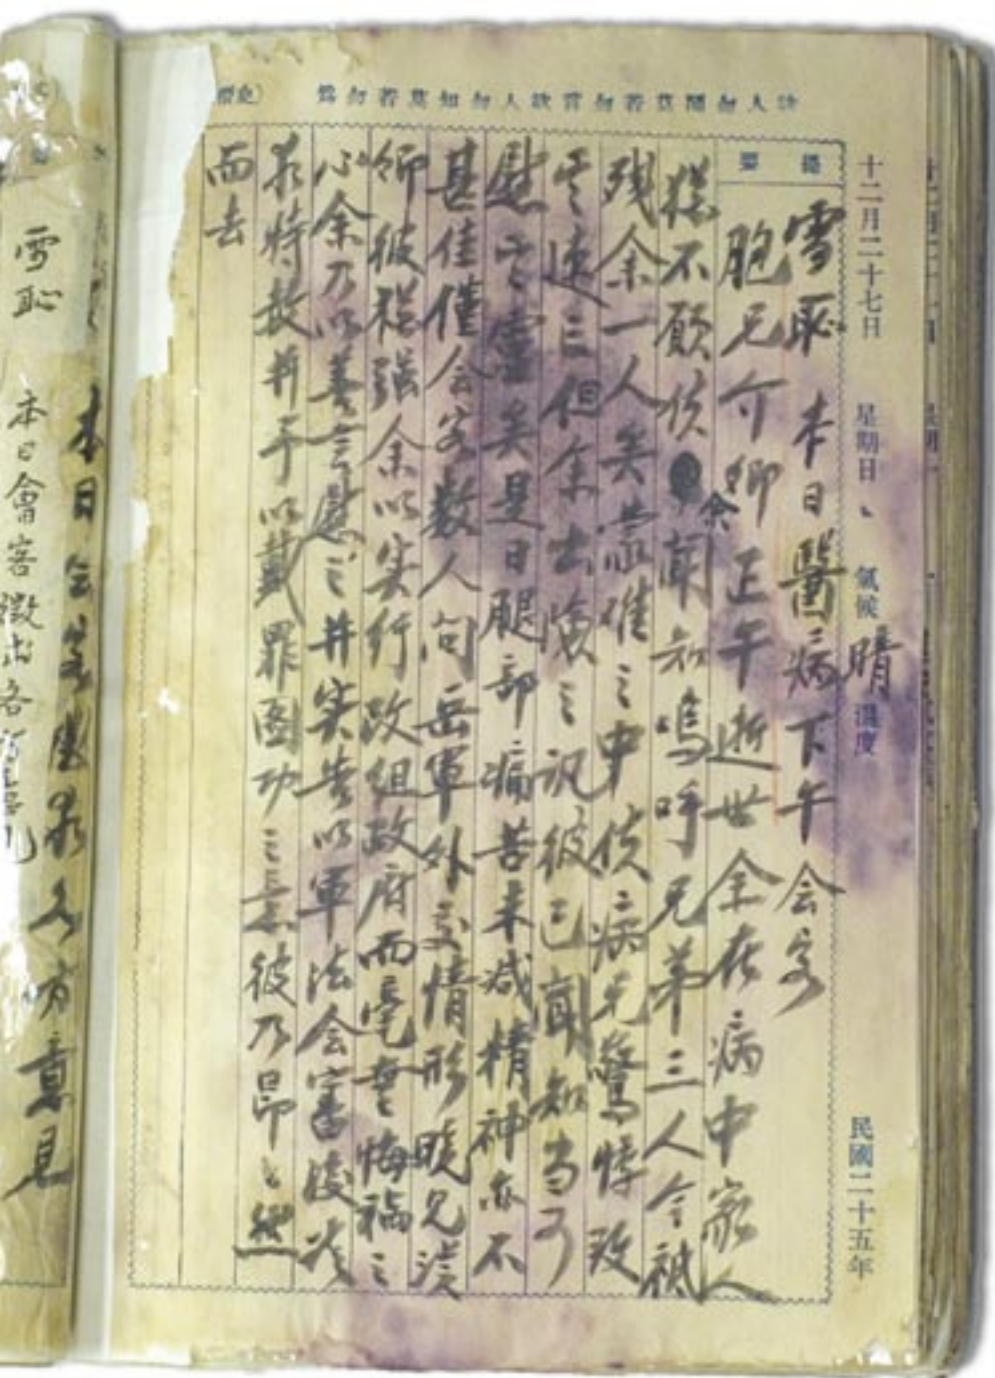 欲人勿聞莫若勿言欲人勿知莫若勿為
十二月二十七日 星期日 氣候 晴 溫度 民國二十五年
提要
雪恥 本日醫病下午会客
胞兄介卿正午逝世全在病中家人
猶不願使余聞知嗚呼兄弟三人今祇
残余一人矣當此之中使病兄驚悸致
速之但余出險之訊彼已聞知当可
慰在靈矣是日腿部痛苦未减精神亦不
甚佳僅会客数人向岳軍外交情形晚見漢
卿彼犹强余以实行改组政府而毫無悔禍之
心余乃以善言慰之并实告以軍法会審後
特赦并予以戴罪图功之意彼乃昂々然
而去
雪恥 本日會客徵求各
本日会客徵求各方意見